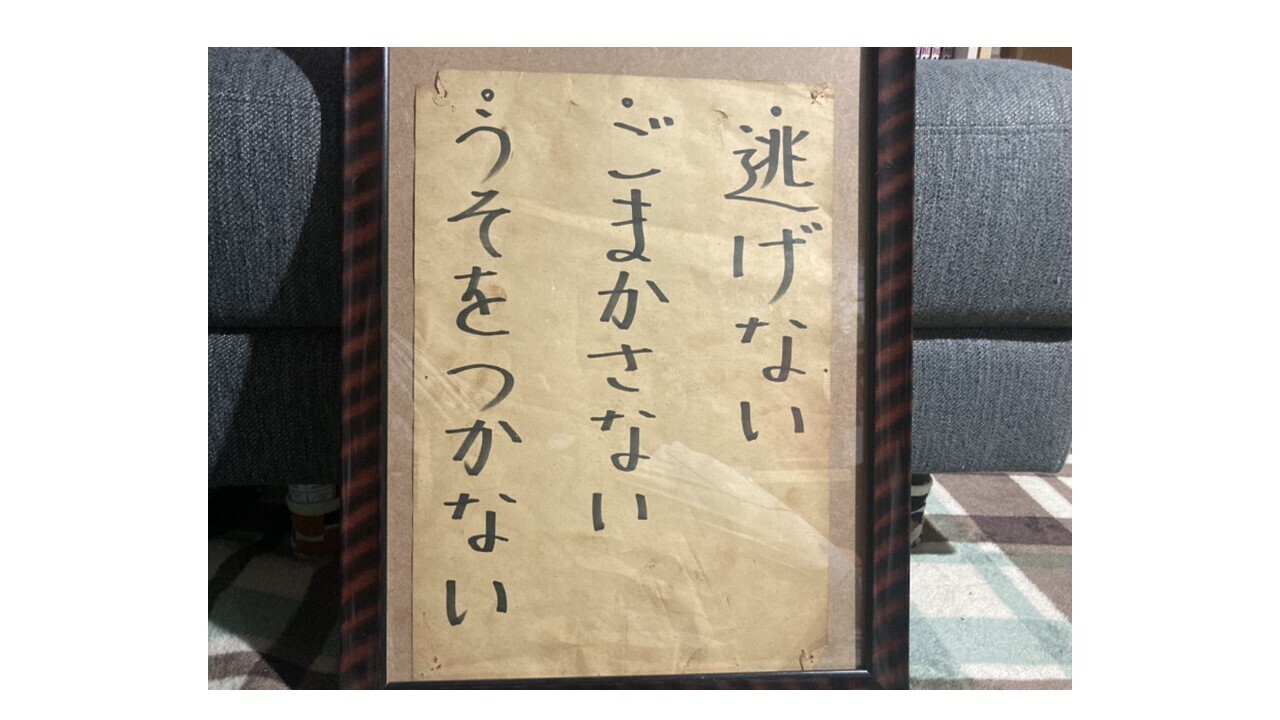 。逃げない
。ごまかさない
。うそをつかない